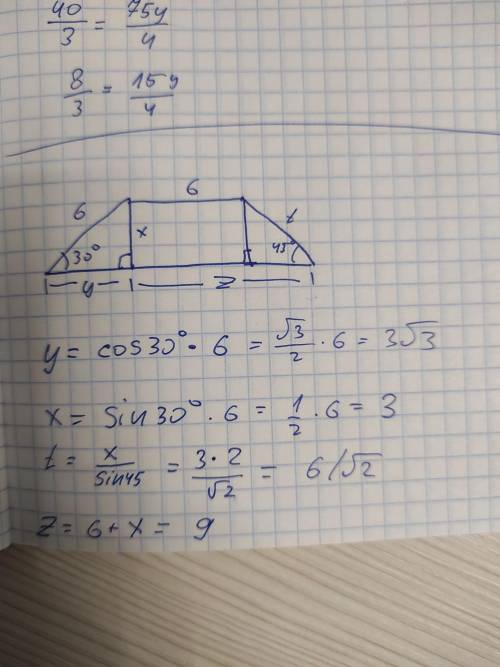 40/3 = 75y/4
8/3 = 15y/4
6
6
x
t
30°
45
y
z
y = cos30° · 6 = √3/2 · 6 = 3√3
x = sin30° · 6 = 1/2 · 6 = 3
t = x/sin45 = 3·2/√2 = 6/√2
z = 6 + x = 9